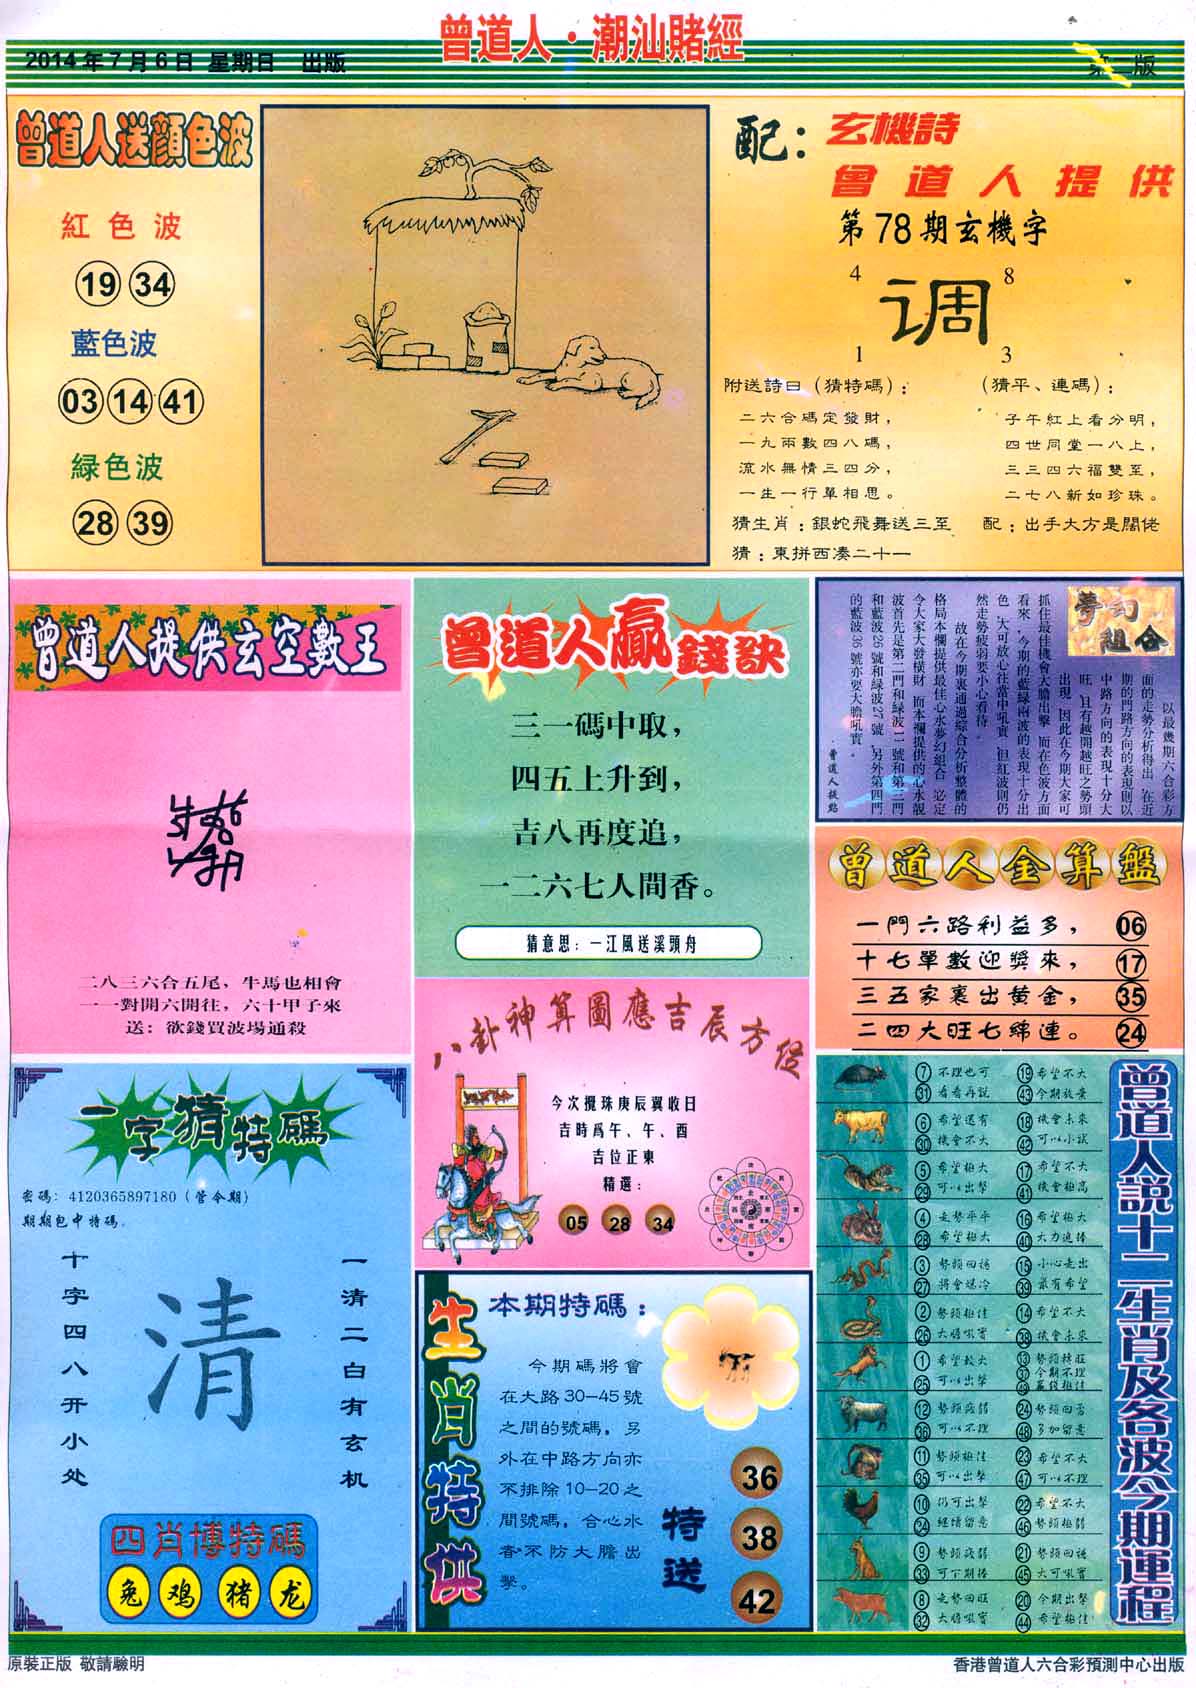 曾道人·潮汕賭經
2014年7月6日 星期日 出版
第二版
曾道人送顏色波
紅色波
19 34
藍色波
03 14 41
緑色波
28 39
配：玄機詩
曾道人提供
第78期玄機字
4 8
调
1 3
附送詩曰（猜特碼）：
二六合碼定發財，
一九兩數四八碼，
流水無情三四分，
一生一行單相思。
（猜平、連碼）：
子午紅上看分明，
四世同堂一八上，
三三四六福雙至，
二七八新如珍珠。
猜生肖：銀蛇飛舞送三至 配：出手大方是闊佬
猜：東拼西凑二十一
曾道人提供玄空數王
二八三六合五尾，牛馬也相會
一一對開六開往，六十甲子來
送：欲錢買波場通殺
曾道人贏錢訣
三一碼中取，
四五上升到，
吉八再度追，
一二六七人間香。
猜意思：一江風送溪頭舟
夢幻組合
以最幾期六合彩方
面的走勢分析得出，在近
期的門路方向的表現則以
中路方向的表現十分大
旺，且有越開越旺之勢頭
出現，因此在今期大家可
抓住最佳機會大膽出擊，而在色波方面
看來，今期的藍緑兩波的表現十分出
色，大可放心往當中吼實，但紅波則仍
然走勢疲弱要小心看待。
故在今期裏通過綜合分析整體的
格局本欄提供最佳心水夢幻組合，必定
令大家大發橫財，而本欄提供的心水靚
波首先是第二門和綠波11號和第三門
和藍波26號和緑波27號，另外第四門
的藍波36號亦要大膽吼實。
曾道人提點
曾道人金算盤
一門六路利益多， 06
十七單數迎獎來， 17
三五家裏出黄金， 35
二四大旺七綿連。 24
八卦神算圖應吉辰方位
今次攪珠庚辰翼收日
吉時爲午、午、酉
吉位正東
精選：
05 28 34
一字猜特碼
密碼：4120365897180（管令期）
期期包中特碼。
一清二白有玄机
清
十字四八开小处
四肖博特碼
兔 鸡 猪 龙
生肖特供
本期特碼：
今期碼將會
在大路30—45號
之間的號碼，另
外在中路方向亦
不排除10—20之
間號碼，合心水
者不防大膽出
擊。
特送
36
38
42
曾道人說十二生肖及各波今期運程
7 不理也可 19 希望不大
31 看看再說 43 今期放棄
6 希望還有 18 機會未來
30 機會不大 42 可以小試
5 希望極大 17 希望不大
29 可以出擊 41 機會極高
4 走勢平平 16 希望極大
28 希望極大 40 大力追捧
3 勢頭回捲 15 小心走出
27 將會爆冷 39 最有希望
2 勢頭極佳 14 希望不大
26 大膽吼實 38 機會未來
1 希望較大 13 勢頭轉旺
25 可以出擊 37 今期不理
49 贏錢極佳
12 勢頭疲弱 24 勢頭回落
36 可以不理 48 多加留意
11 勢頭極佳 23 希望不大
35 可以出擊 47 可以不理
10 仍可出擊 22 希望不大
34 繼續留意 46 勢頭極弱
9 勢頭疲弱 21 勢頭回捲
33 可下期捧 45 大可吼實
8 走勢回旺 20 今期出擊
32 大膽吼實 44 希望極佳
原裝正版 敬請驗明
香港曾道人六合彩預測中心出版